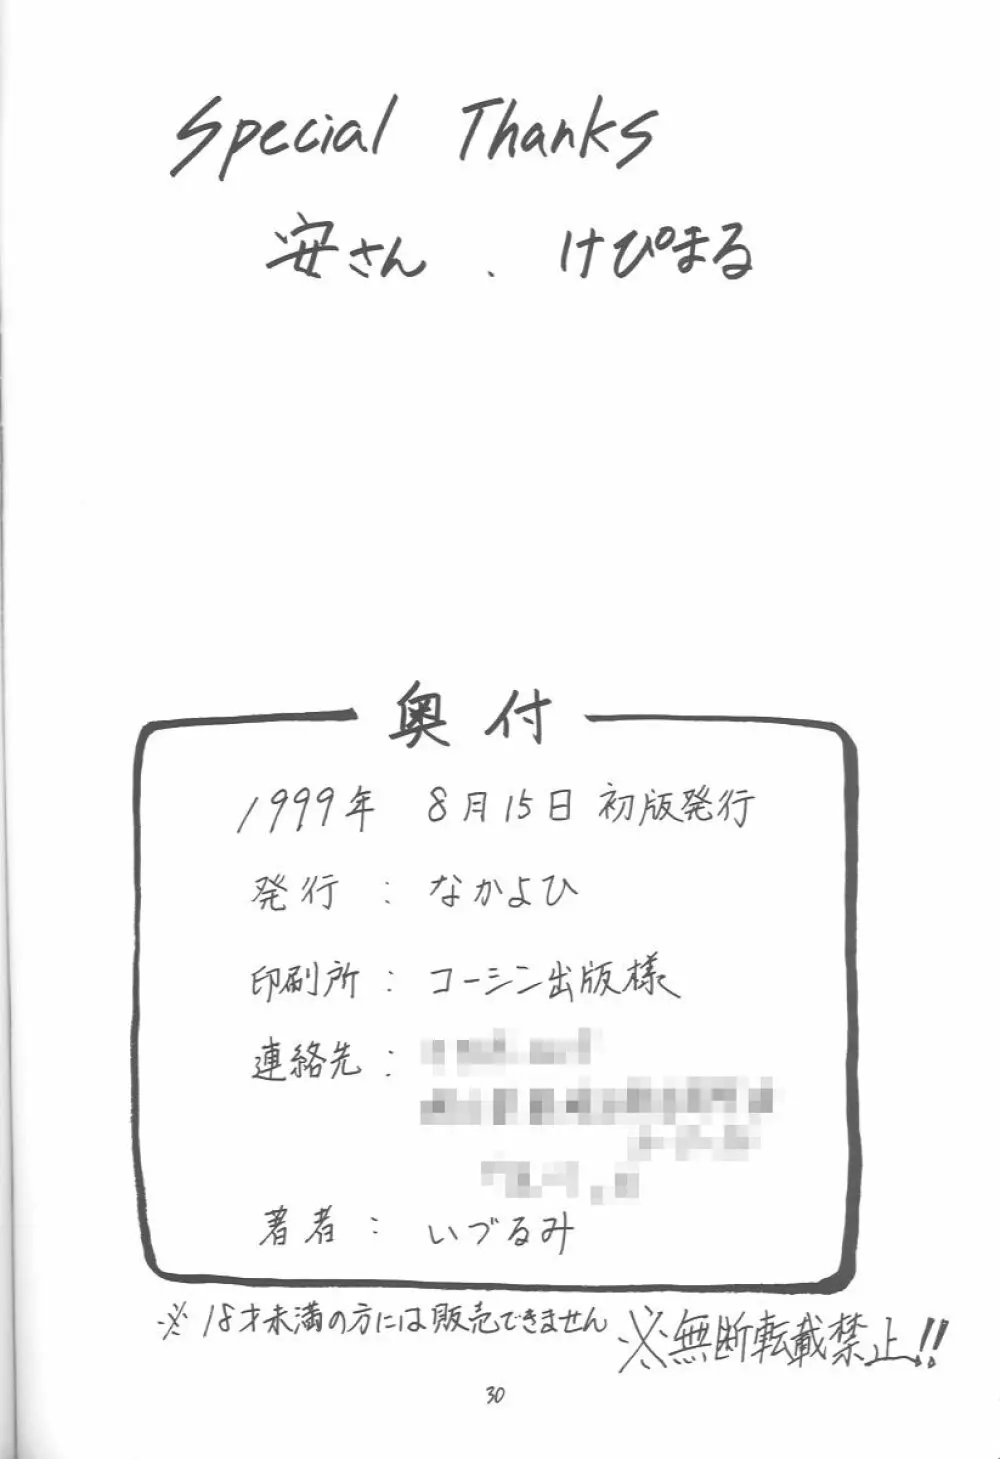 Special Thanks
安さん、けぴまる
奥付
1999年 8月15日 初版発行
発行：なかよひ
印刷所：コーシン出版様
連絡先：
著者：いづるみ
※18才未満の方には販売できません
※無断転載禁止!!
30